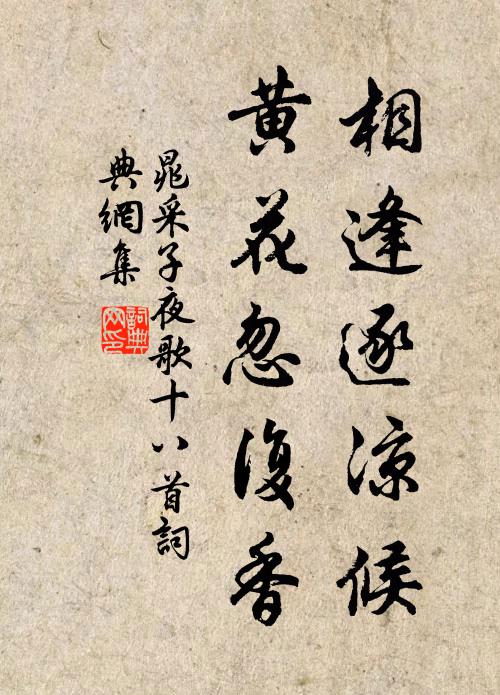 相逢逐涼候
黄花忽復香
晁采子夜歌十八首詞
典網集
詞典
网印